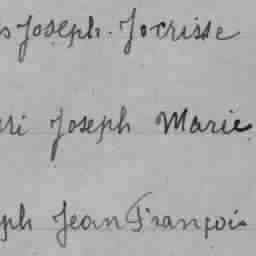 s Joseph. Jocrisse
ri Joseph Marie
ph Jean François